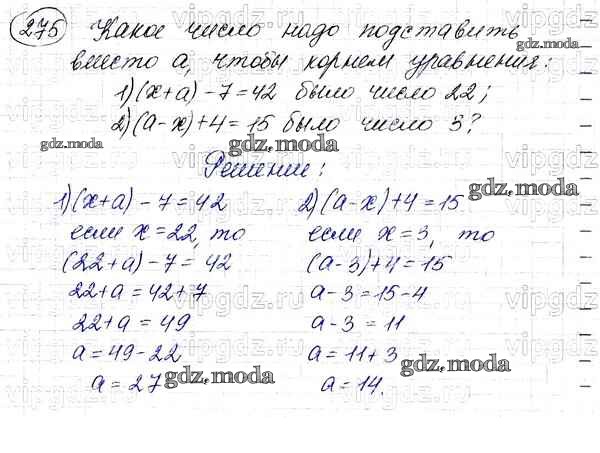 275 Какое число надо подставить
вместо а, чтобы корнем уравнения:
1) (x+a) - 7 = 42 было число 22;
2) (a-x) + 4 = 15 было число 3?
Решение:
1) (x+a) - 7 = 42
если x = 22, то
(22+a) - 7 = 42
22+a = 42+7
22+a = 49
a = 49-22
a = 27
2) (a-x) + 4 = 15
если x = 3, то
(a-3) + 4 = 15
a-3 = 15-4
a-3 = 11
a = 11+3
a = 14.
gdz.moda
gdz.moda
gdz.moda
gdz.moda
gdz.moda
gdz.moda
vipgdz.ru